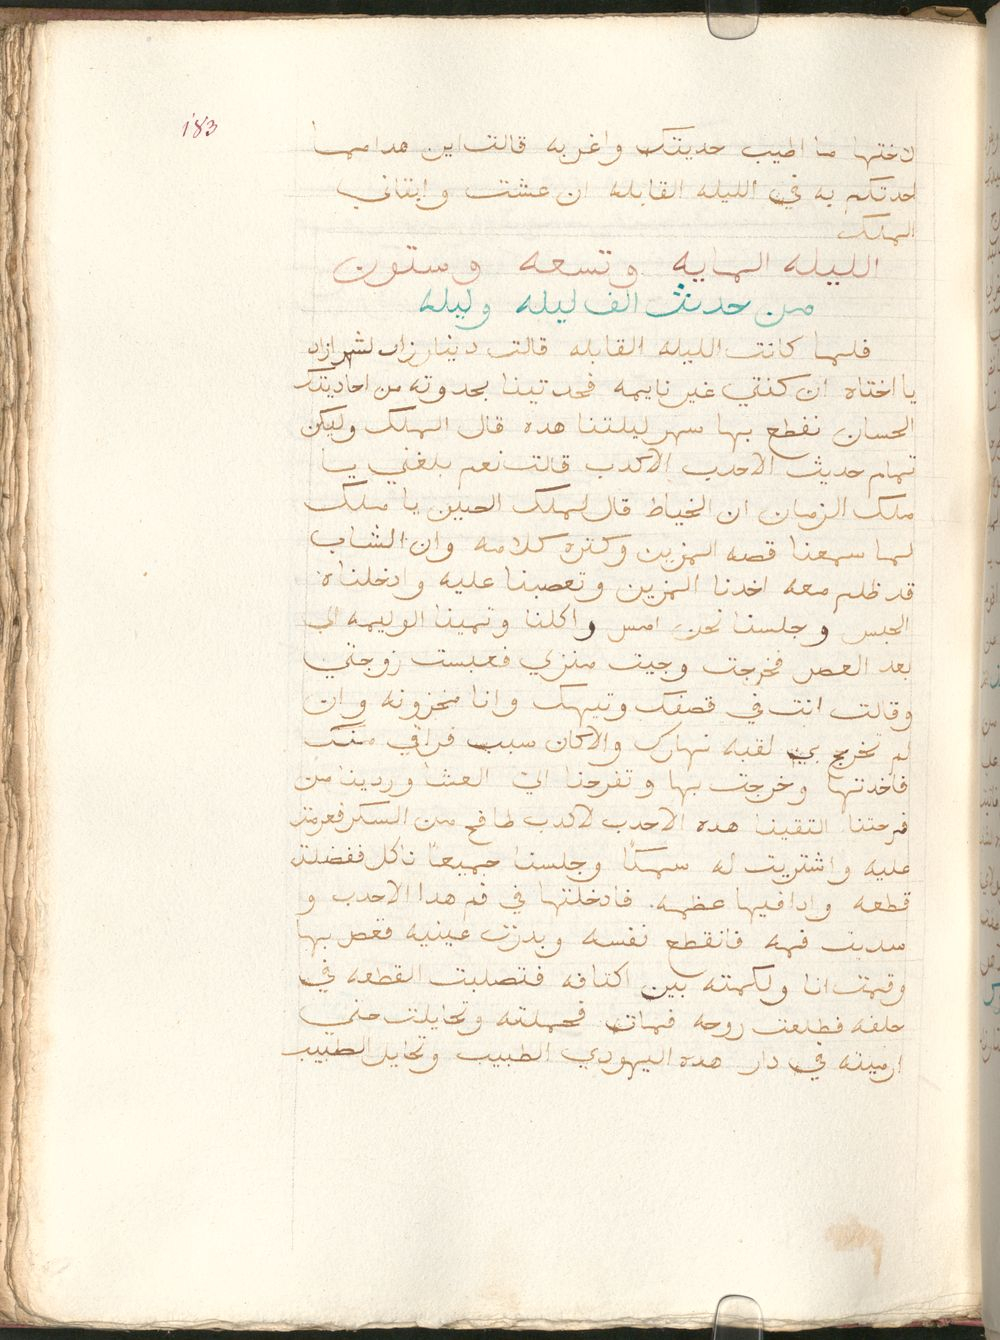 183
لاختها ما اطيب حديتك واغربه قالت اين هدا مما
احدتكم به في الليله القابله ان عشت وابقاني
الملك
الليله المايه وتسعه وستون
من حديث الف ليله وليله
فلما كانت الليله القابله قالت دينارزاد لشهرازاد
يا اختاه ان كنتي غير نايمه فحدتينا بحدوته من احاديتك
الحسان نقطع بها سهر ليلتنا هده قال الملك وليكن
تمام حديث الاحدب الاكدب قالت نعم بلغني يا
ملك الزمان ان الخياط قال لملك الصين يا ملك
لما سمعنا قصه المزين وكتره كلامه وان الشاب
قد ظلم معه اخدنا المزين وتعصبنا عليه وادخلناه
الحبس وجلسنا نحن امس واكلنا وتمينا الوليمه الى
بعد العصر فخرجت وجيت منزلي فعبست زوجتي
وقالت انت في قصفك وتيهك وانا مخزونه وان
لم تخرج بي لقبه نهارك والا كان سبب فراقي منك
فاخدتها وخرجت بها وتفرجنا الى العشا وردينا من
فرحتنا التقينا هده الاحدب الاكدب طافح من السكر فعرمت
عليه واشتريت له سمكا وجلسنا جميعا ناكل ففضلت
قطعه وادا فيها عظمه فادخلتها في فم هدا الاحدب و
سديت فمه فانقطع نفسه وبدرت عينيه فغص بها
وقمت انا ولكمته بين اكتافه فتصلبت القطعه في
حلقه فطلعت روحه فمات فحملته وتحايلت حتى
ارميته في دار هده اليهودي الطبيب وتحايل الطبيب